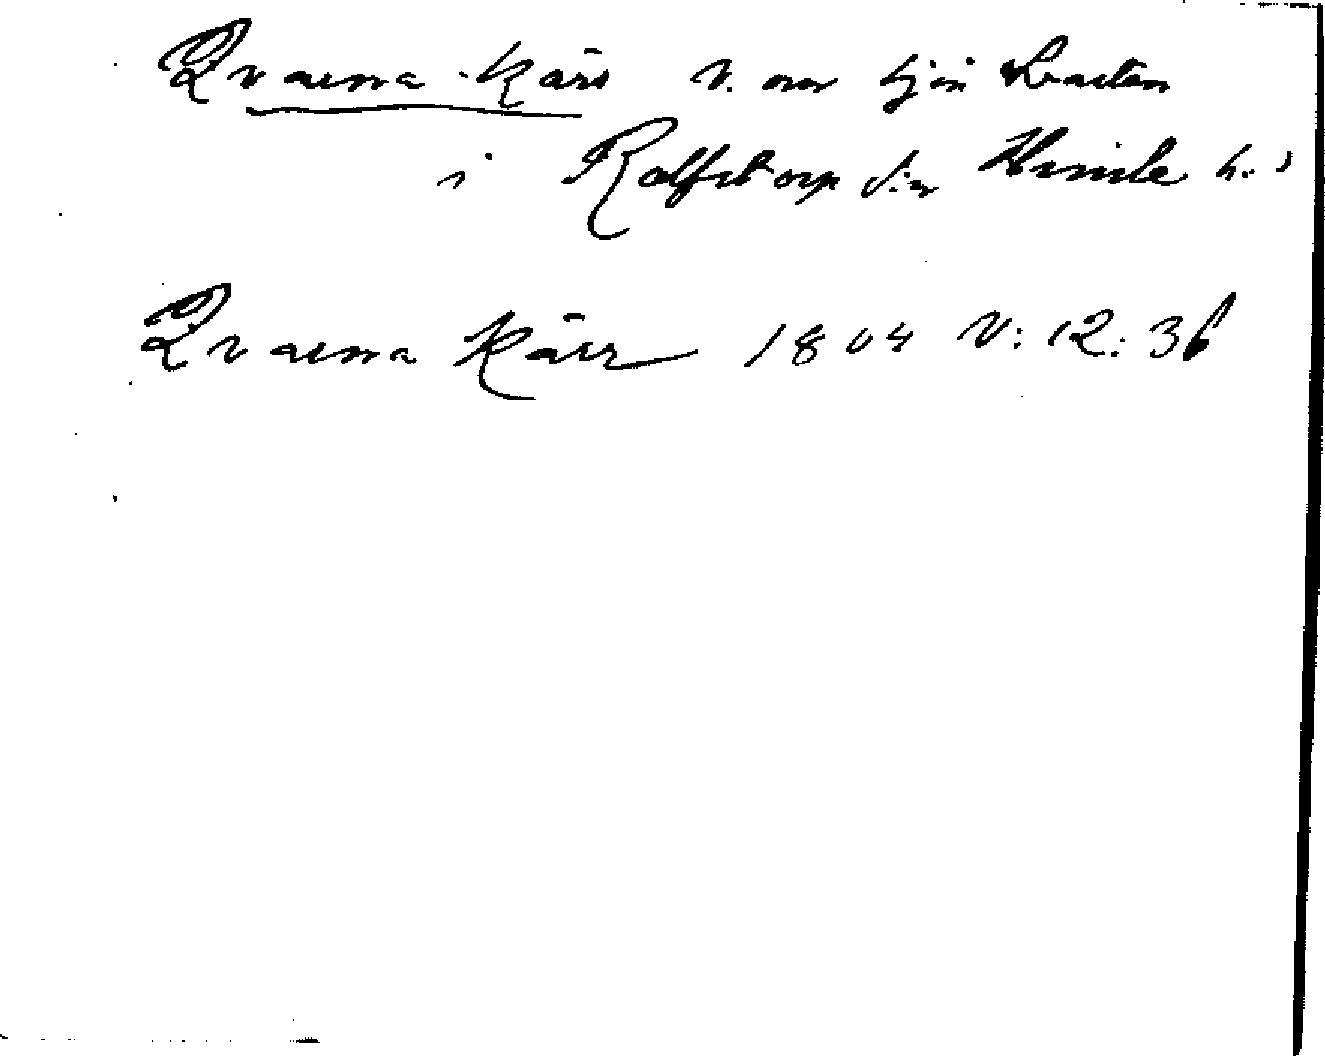 Qvarna Kärr V. om sjön Lmarten
i Rolfstorp s:n Himle h.
Qvarna Kärr 1804 V: 12: 36